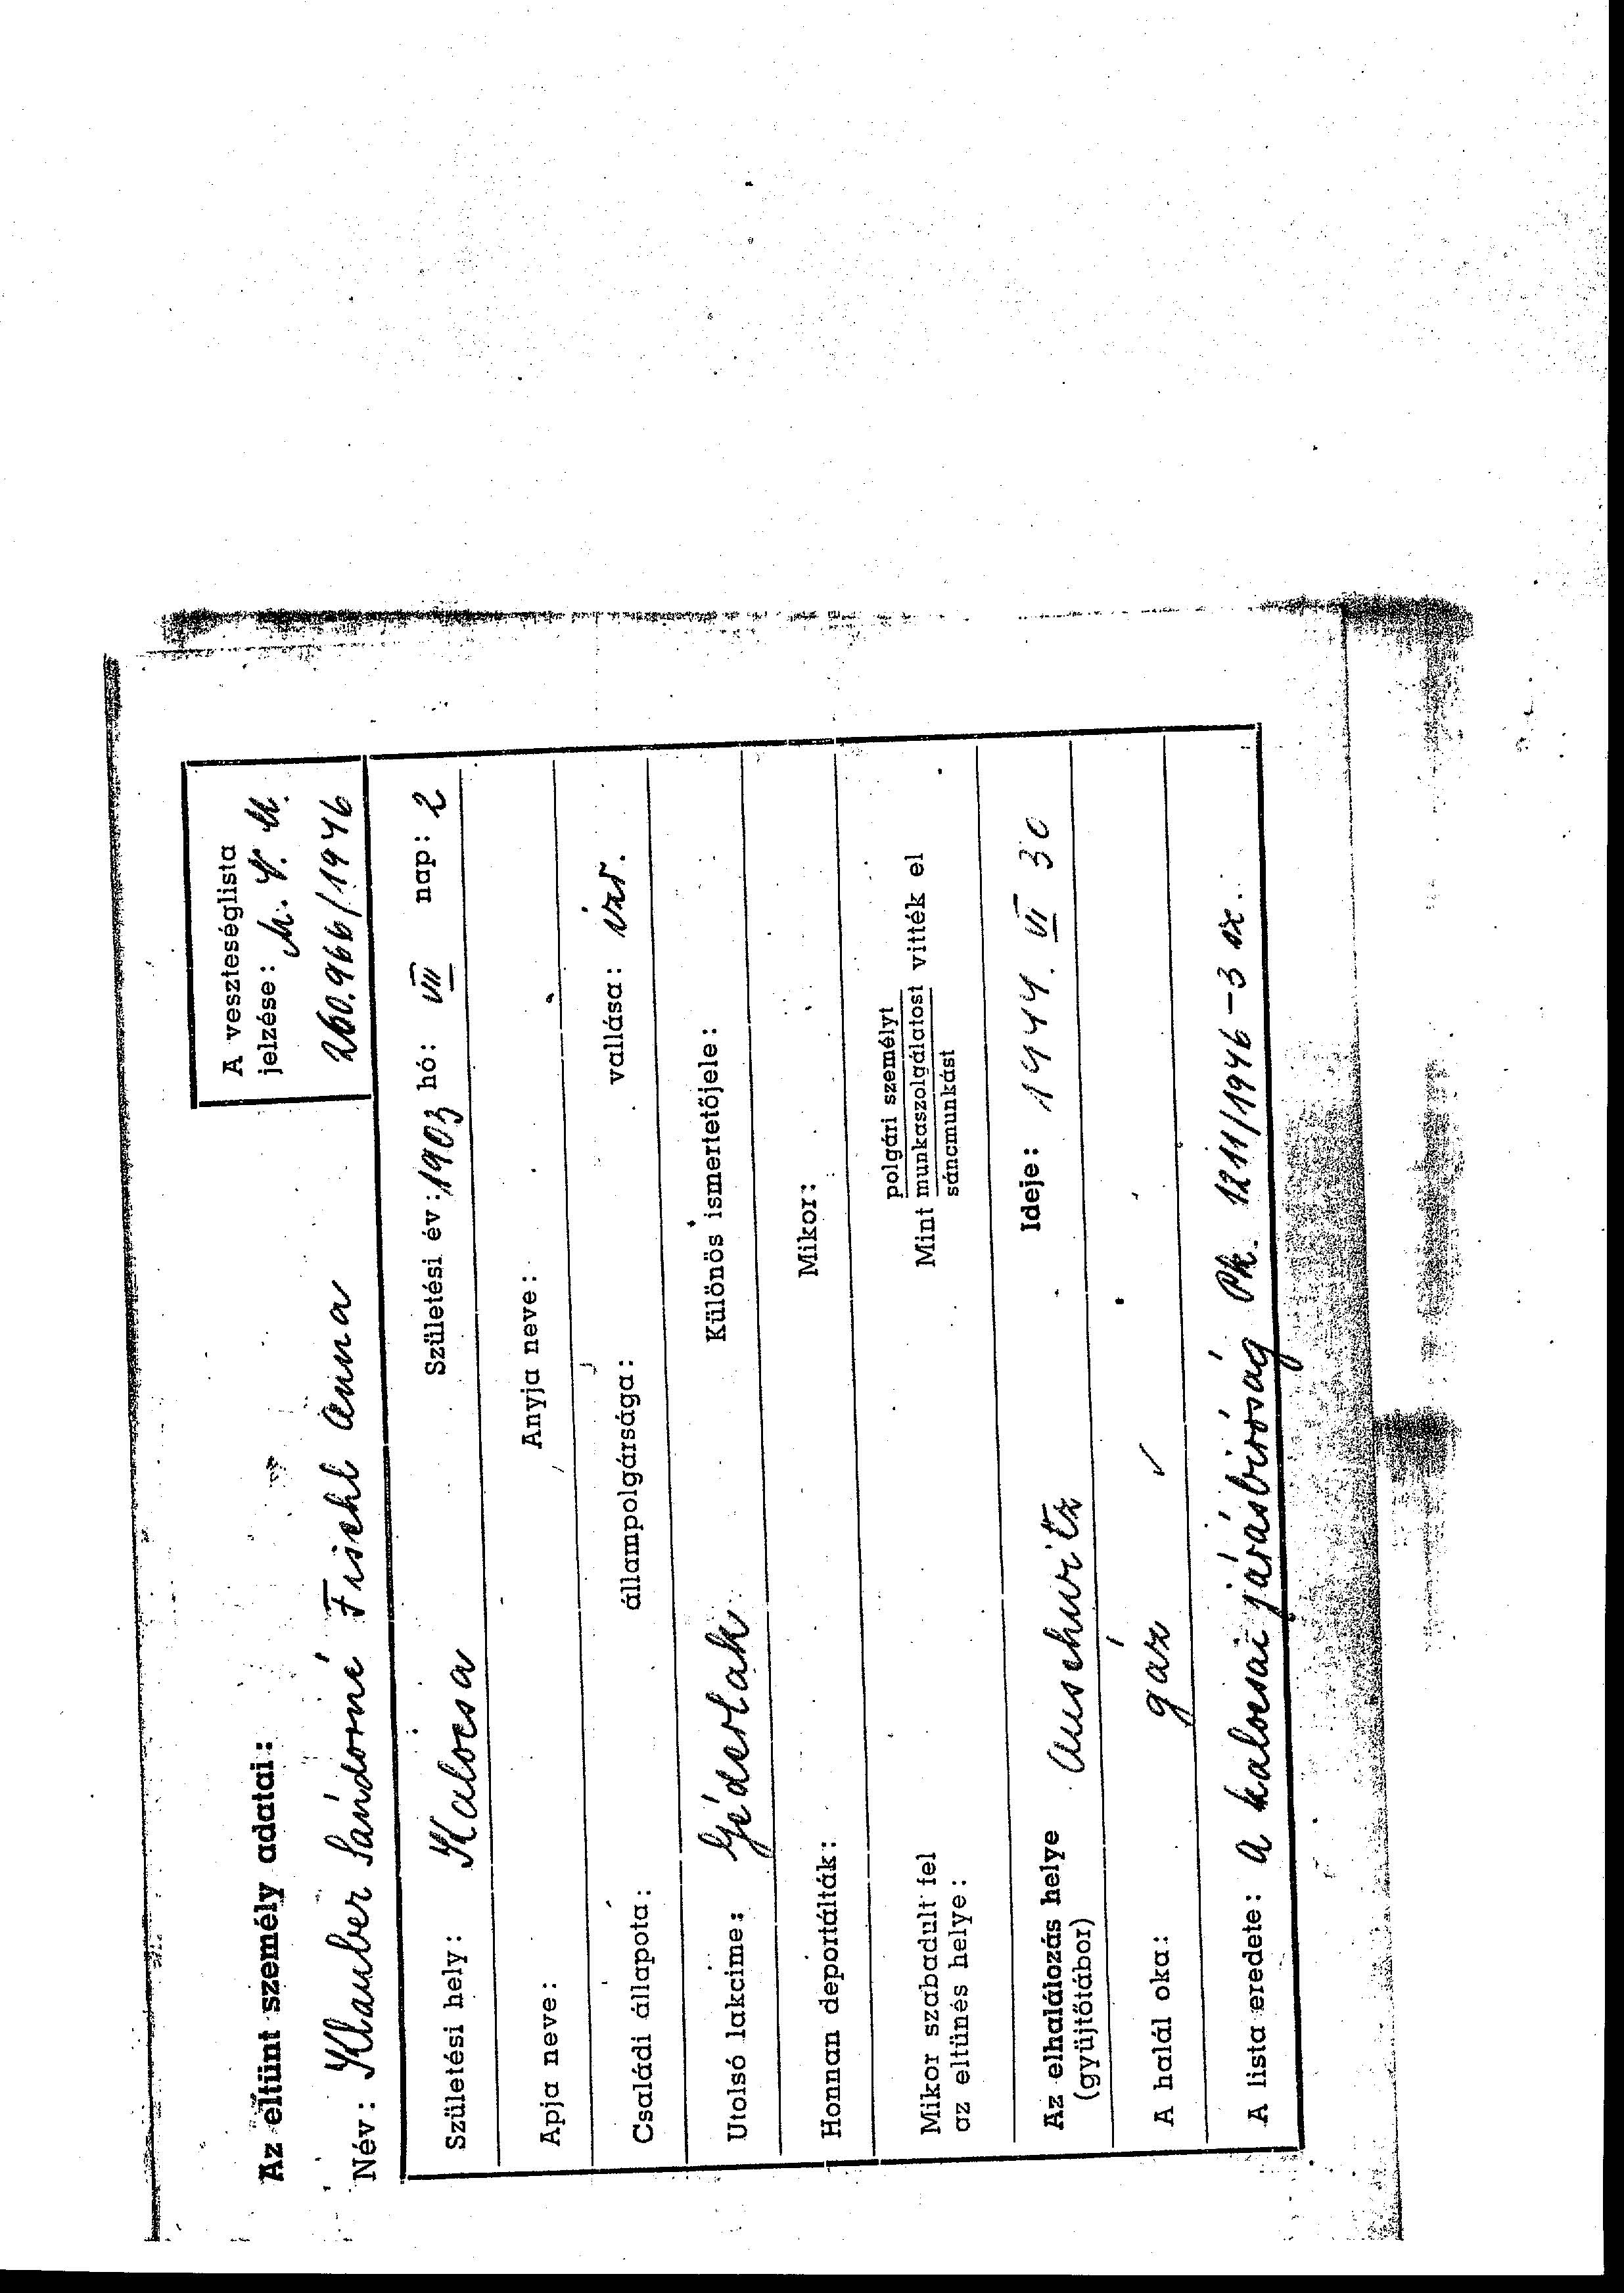 A veszteséglista
jelzése: M. V. M.
260.966/1946
Az eltünt személy adatai:
Név: Klauber Sándorné Fischl Anna
Születési hely: Kalocsa Születési év: 1903 hó: VII nap: 2
Apja neve: Anyja neve:
Családi állapota: állampolgársága: vallása: izr.
Utolsó lakcime: Géderlak Különös ismertetőjele:
Honnan deportálták: Mikor:
Mikor szabadult fel
az eltünés helye:
polgári személyt
Mint munkaszolgálatost vitték el
sáncmunkást
Az elhalálozás helye Auschwitz Ideje: 1944. VI 30
(gyüjtőtábor)
A halál oka: gáz
A lista eredete: a kalocsai járásbiróság Pk. 1211/1946-3 sz.